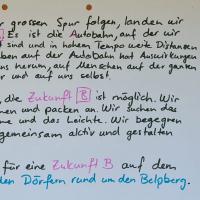 r grossen Spur folgen, landen wir
. Es ist die Autobahn, auf der wir
t sind und in hohem Tempo weite Distanzen
ben auf der Autobahn hat Auswirkungen
uns herum, auf Menschen auf der ganzen
r und auf uns selbst.
, die Zukunft B ist möglich. Wir
nen und packen an. Wir suchen das
ne und das Leichte. Wir begegnen
gemeinsam aktiv und gestalten
für eine Zukunft B auf dem
den Dörfern rund um den Belpberg.